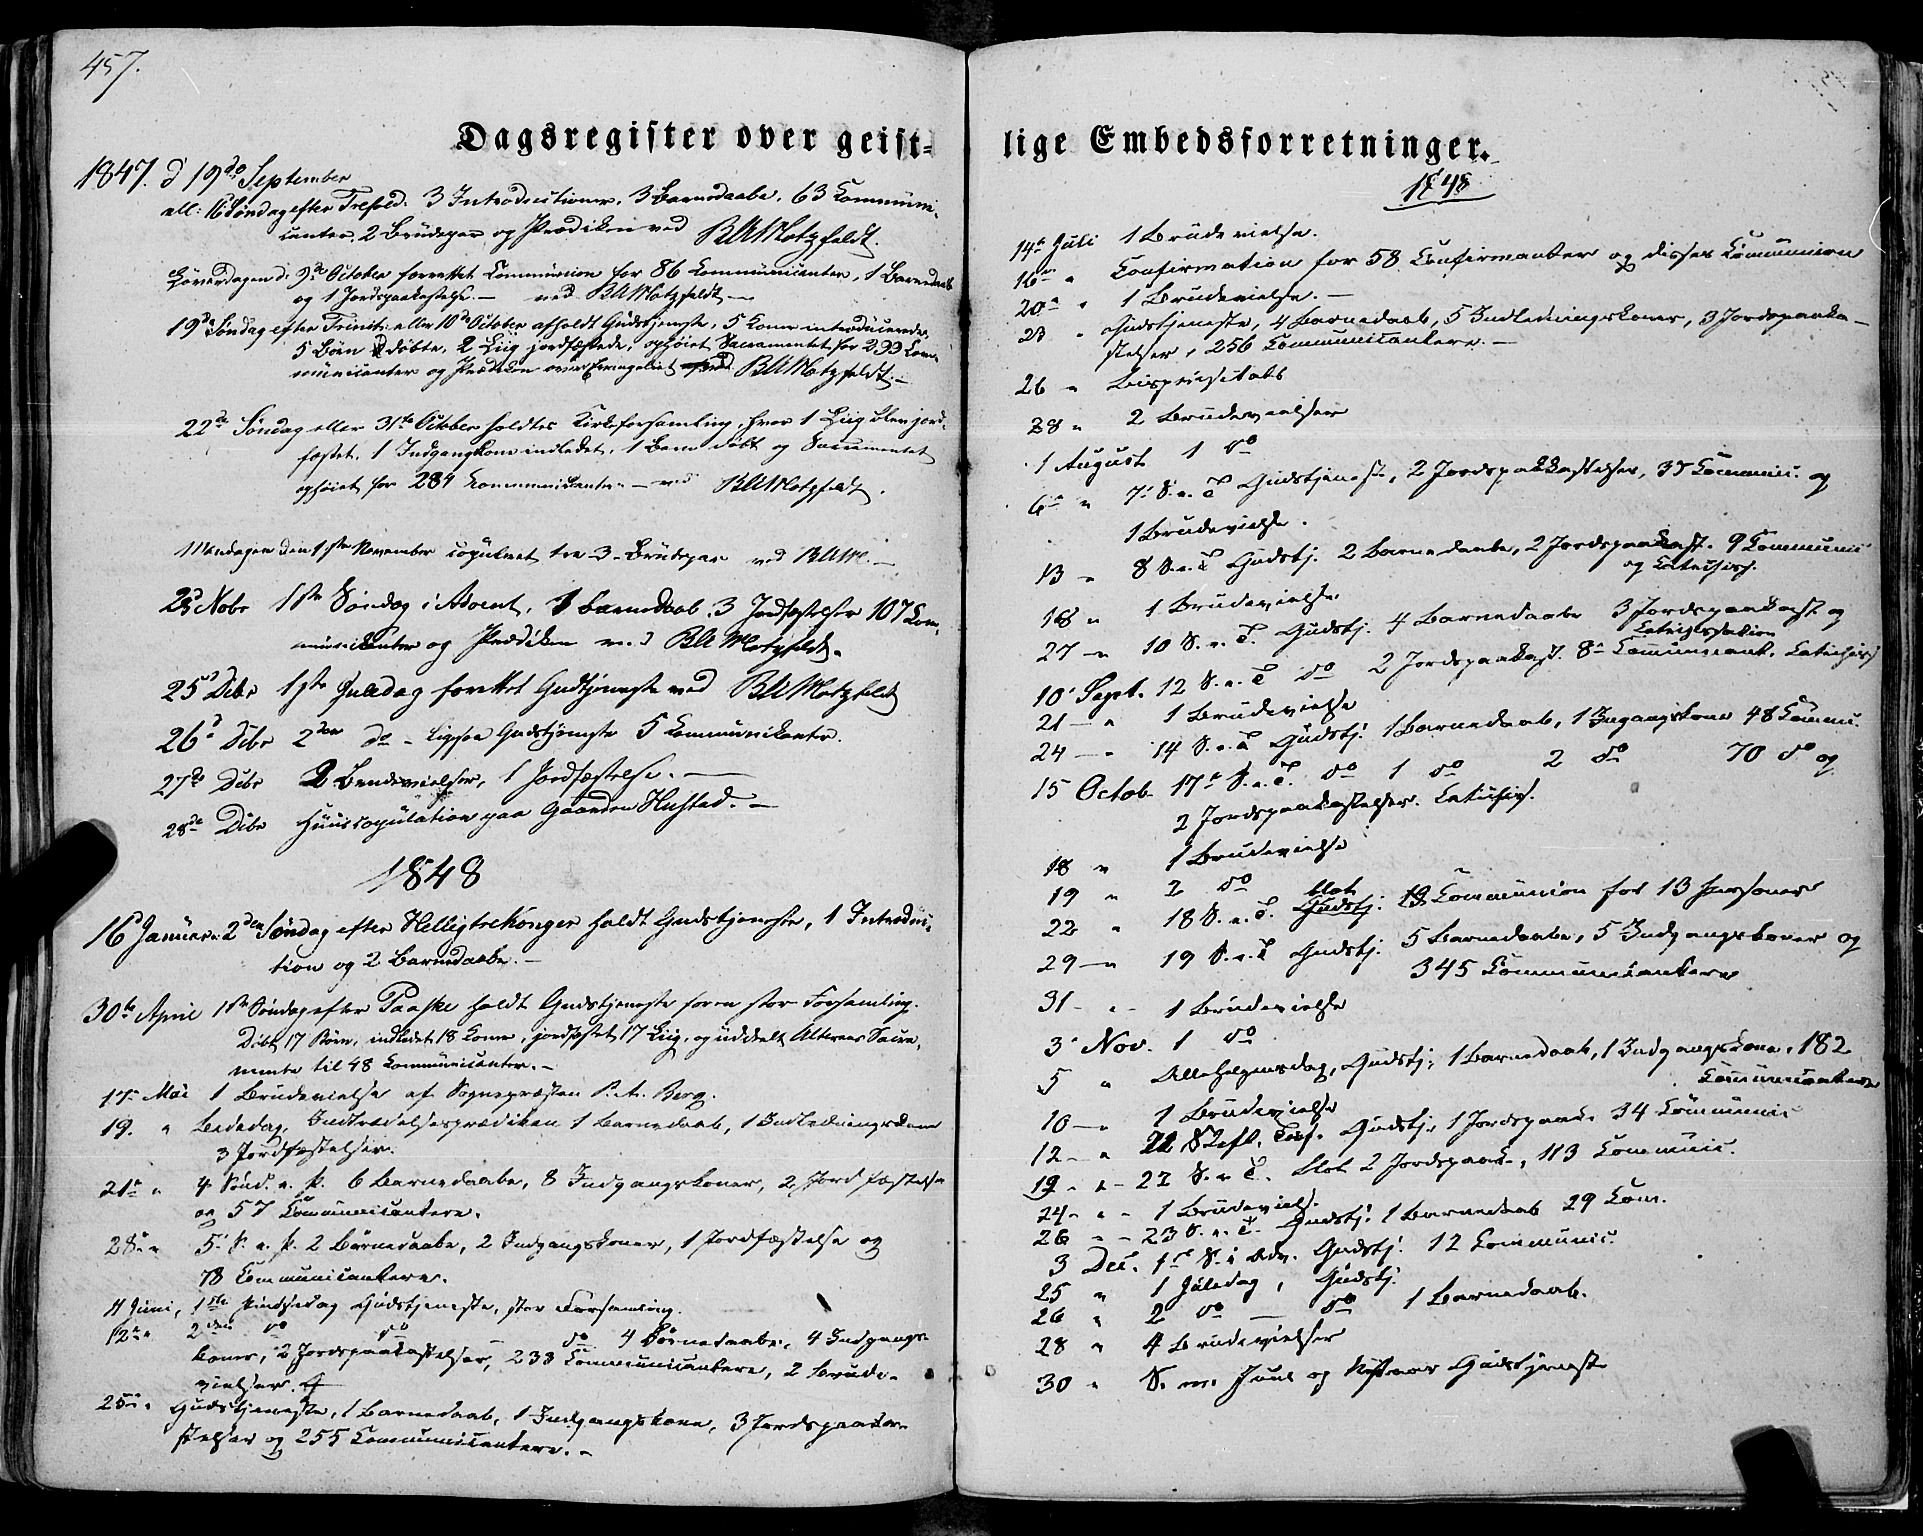 457.
Dagsregister over geist=
1847. d 19de September
ell: 16 Søndag efter Trefold. 3 Introductioner, 3 Barnedaabe, 63 Communi-
canter, 2 Brudepar og Prædiken ved BAMotzfeldt.
Løverdagen d: 9de October forrettet Communion for 86 Communicanter, 1 Barnedaab
og 1 Jordspaakastelse. — ved BAMotzfeldt —
19de Søndag efter Trinit: eller 10de October afholdt Gudstjeneste, 5 Koner introducerede,
5 Børn døbte, 2 Liig jordfæstede, ophøiet Sacramentet for 299 Com-
municanter og Prædiken over Evangeliet BAMotzfeldt. —
22de Søndag eller 31te October holdtes Kirkeforsamling, hvor 1 Liig blev jord-
fæstet, 1 Indgangskone indledet, 1 Barn døbt og Sacramentet
ophøiet for 284 Communicanter — ved BAMotzfeldt.
Mandagen den 1ste November copuleret tre -3- Brudepar ved BAM. —
28d Nobr 1ste Søndag i Advent, 1 Barnedaab, 3 Jordfæstelser 107 Com-
municanter og Prædiken ved BAMotzfeldt.
25d Dcbr 1ste Juledag forrettet Gudstjeneste ved BAMotzfeldt
26d Dcbr 2den do - ligesaa Gudstjeneste 5 Communikanter.
27de Dcbr 2 Brudevielser, 1 Jordfæstelse. —
28de Dcbr Huuscopulation paa Gaarden Hustad. —
1848
16 Januar 2den Søndag efter Helligtrekonger holdt Gudstjeneste, 1 Introduc-
tion og 2 Barnedaabe. —
30te April 1ste Søndag efter Paaske holdt Gudstjeneste for en stor Forsamling.
Døbt 17 Børn, indledet 18 Koner, jordfæstet 17 Liig, og uddeelt Alterens Sacra-
mente til 48 Communicanter. —
17. Mai 1 Brudevielse af Sognepræsten P. A. Berg.
19. " Bededag, Indtrædelsesprædiken 1 Barnedaab, 1 Indledningskone
3 Jordfæstelser.
21 " 4 Sønd. e. P. 6 Barnedaabe, 8 Indgangskoner, 2 Jordfæstelse
og 57 Communicantere.
28 " 5. S. e. P. 2 Barnedaabe, 2 Indgangskoner, 1 Jordfæstelse og
78 Communicantere.
11 Juni, 1ste Pindsedag Gudstjeneste, stor Forsamling.
12 " 2den do do do 4 Barnedaabe, 4 Indgangs-
koner, 2 Jordspaakastelser, 233 Communicantere, 2 Brude-
vielser.
25 " Gudstjeneste, 1 Barnedaab, 1 Indgangskone, 3 Jordspaaka-
stelser og 255 Communicantere. —
lige Embedsforretninger.
1848
14 Juli 1 Brudevielse.
16 " Confirmation for 58 Confirmanter og disses Communion
20 " 1 Brudevielse. —
23 " Gudstjeneste, 4 Barnedaab, 5 Indledningskoner, 3 Jordspaaka-
stelser, 256 Communicantere. —
26 " Bispevisitats
28 " 2 Brudevielser
1 August 1 do
6 " 7. S. e. T. Gudstjeneste, 2 Jordspaakastelser, 35 Communic. og
1 Brudevielse.
13 " 8 S. e. T. Gudstj. 2 Barnedaabe, 2 Jordspaakast. 9 Communic
og Catechis.
18 " 1 Brudevielse
27 " 10 S. e. T. Gudstj. 4 Barnedaabe 3 Jordspaakast og
Catechisation
10 Sept. 12 S. e. T. do 2 Jordspaakast. 8 Communicant. Catechis
21 — " 1 Brudevielse
24 — 14 S. e. T. Gudstj. 1 Barnedaab, 1 Ingangskone 48 Commu.
15 Octob. 17 S. e. T. do 1 do 2 do 70 do og
2 Jordspaakastelser. Catechis.
18 " 1 Brudevielse
19 " 2 do
22 " 18 S. e. T. Gudstj. blot Communion for 13 Personer
29 — " 19 S. e. T. Gudstj. 5 Barnedaabe, 5 Indgangskoner og
345 Communicantere
31 - " - 1 Brudevielse
3 Nov. 1 do
5 " Allehelgensdag, Gudstj., 1 Barnedaab, 1 Indgangskone, 182
Communicantere
10 — " 1 Brudevielse
12 — " 21 S. eft. Tref. Gudstj. 1 Jordspaak. 34 Communic
19 - " - 22 S. e. T. blot 2 Jordspaak., 113 Communic.
24 - " - 1 Brudevielse.
26 - - 23 S. e. T. Gudstj. 1 Barnedaab 29 Com.
3 Dec. 1 S. i Adv. Gudstj. 12 Communic.
25 " 1 Juledag, Gudstj.
26 " 2 do — do 1 Barnedaab.
28 " 4 Brudevielser
30 " S. m. Juul og Nytaar Gudstjeneste